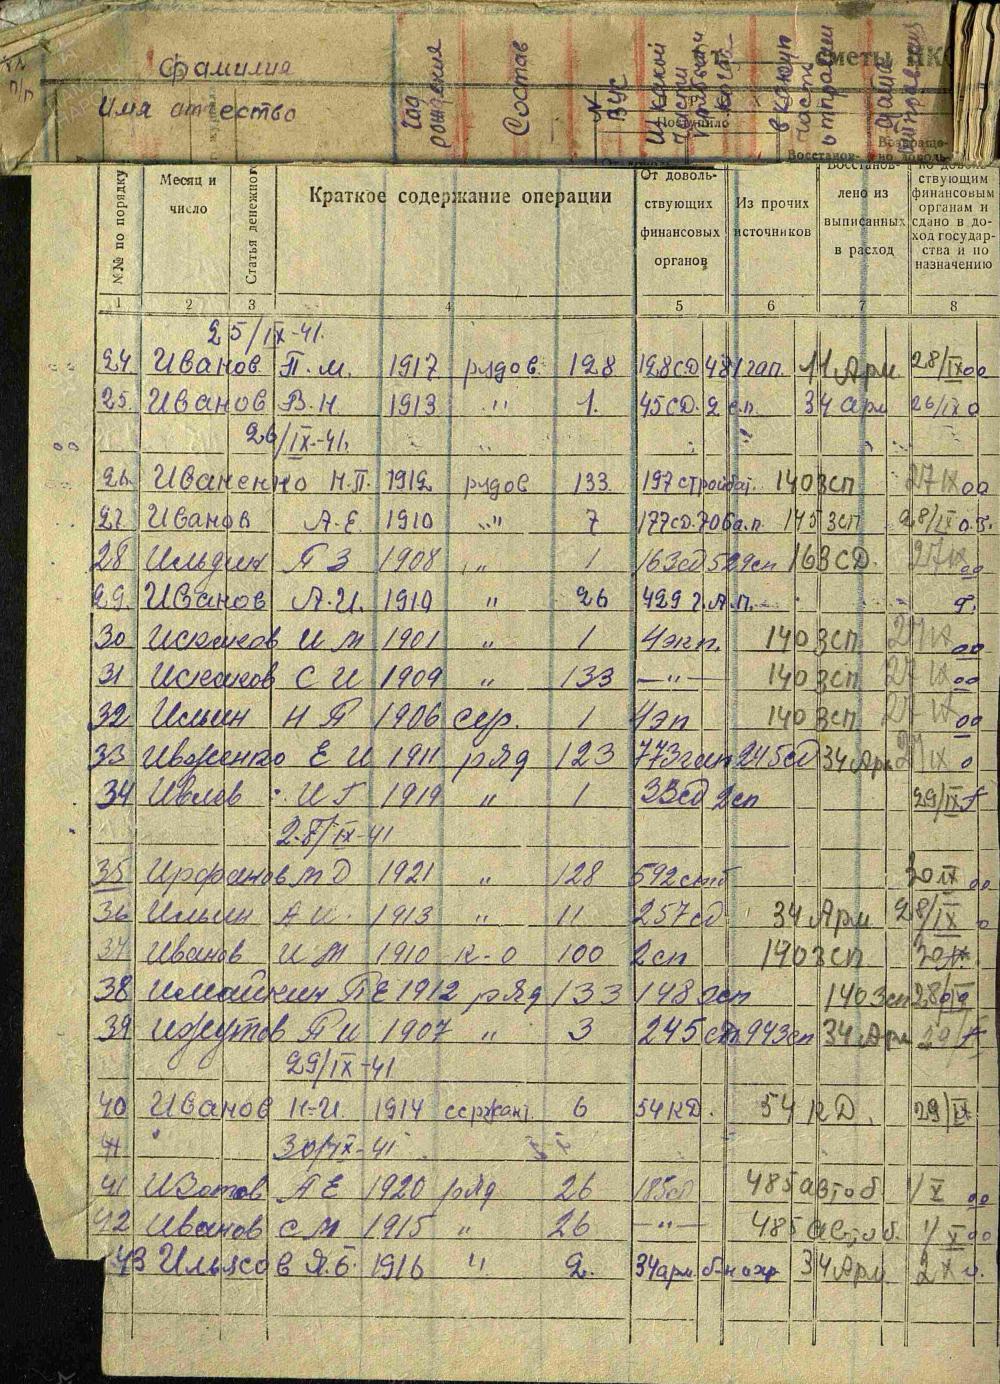 п/п
Фамилия
Имя отчество
Год рождения
Состав
№ ВУС
Из какой части прибыл
в какую часть отправ
дата отправки
сметы НКО
Поступило
№№ по порядку
Месяц и число
Статья денежного
Краткое содержание операции
От доволь-
ствующих
финансовых
органов
Из прочих
источников
Восстанов-
лено из
выписанных
в расход
ствующим
финансовым
органам и
сдано в до-
ход государ-
ства и по
назначению
1 2 3 4 5 6 7 8
25/IX-41.
24 Иванов П.М. 1917 рядов. 128 128СД 481 гап 11 Арм. 28/IX оо
25. Иванов В.Н. 1913 " 1. 45СД. 2 с.п. 34 арм 26/IX о
26/IX-41.
26. Иваненко Н.П. 1912 рядов 133. 197 стройбат. 140 зсп 27 IX оо
27 Иванов А.Е. 1910 " 7 177сд. 706 а.п. 145 зсп 28/IX
28 Ильдин П З 1908 " 1 163сд 529сп 163СД. 27 IX оо
29. Иванов А.И. 1910 " 26 429 г.А.П.
30 Искаков И М 1901 " 1 4эк п. 140 зсп. 27 IX оо
31 Искаков С И 1909 " 133 —"— 140 зсп 27 IX оо
32 Ильин Н П 1906 сер. 1 4эп 140 зсп. 27 IX оо
33 Иваженко Е И 1911 ряд 123 773гап 245сД 34 Арм 27 IX о
34 Ивлов И Г 1919 " 1 33сд 2сп 29/IX
28/IX-41
35 Ирфанов М Д 1921 " 128 592 30 IX оо
36 Ильин А И. 1913 " 11 257сд 34 Арм 28/IX о
37 Иванов И М 1910 к-о 100 2сп 140 зсп
38 Имайкин П Е 1912 ряд 133 148 140 зсп 28/IX
39 П И 1907 " 3 245 943сп 34 Арм 29/IX
29/IX-41
40 Иванов Н-И. 1914 сержант. 6 54КД. 54 КД. 29/IX
41 30/IX-41
41 Изотов А Е 1920 ряд 26 185сД 485 автоб 1/X оо
42 Иванов С М 1915 " 26 —"— 485 автоб. 1/X оо
43 Ильясов Я.Б. 1916 " 2. 34арм. 34 Арм 2 X